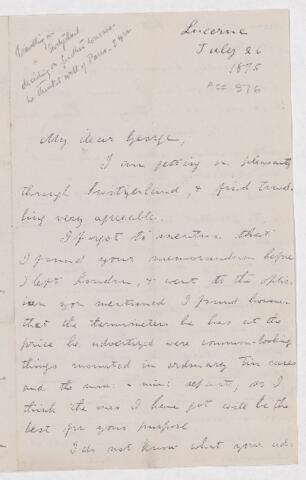 Travelling in
Switzerland
deciding on further courses
Lucerne
July 26
1875
Acc 976
My dear George,
I am getting on pleasantly
through Switzerland, & find travel-
ling very agreeable.
I forgot to mention that
I found your memorandum before
I left London, & went to the optic-
ian you mentioned. I found however
that the thermometers he has at the
price he advertized were common-looking
things mounted in ordinary tin cases
and the max. & mini separate, so I
think the ones I have got will be the
best for your purpose
I do not know what your ad-